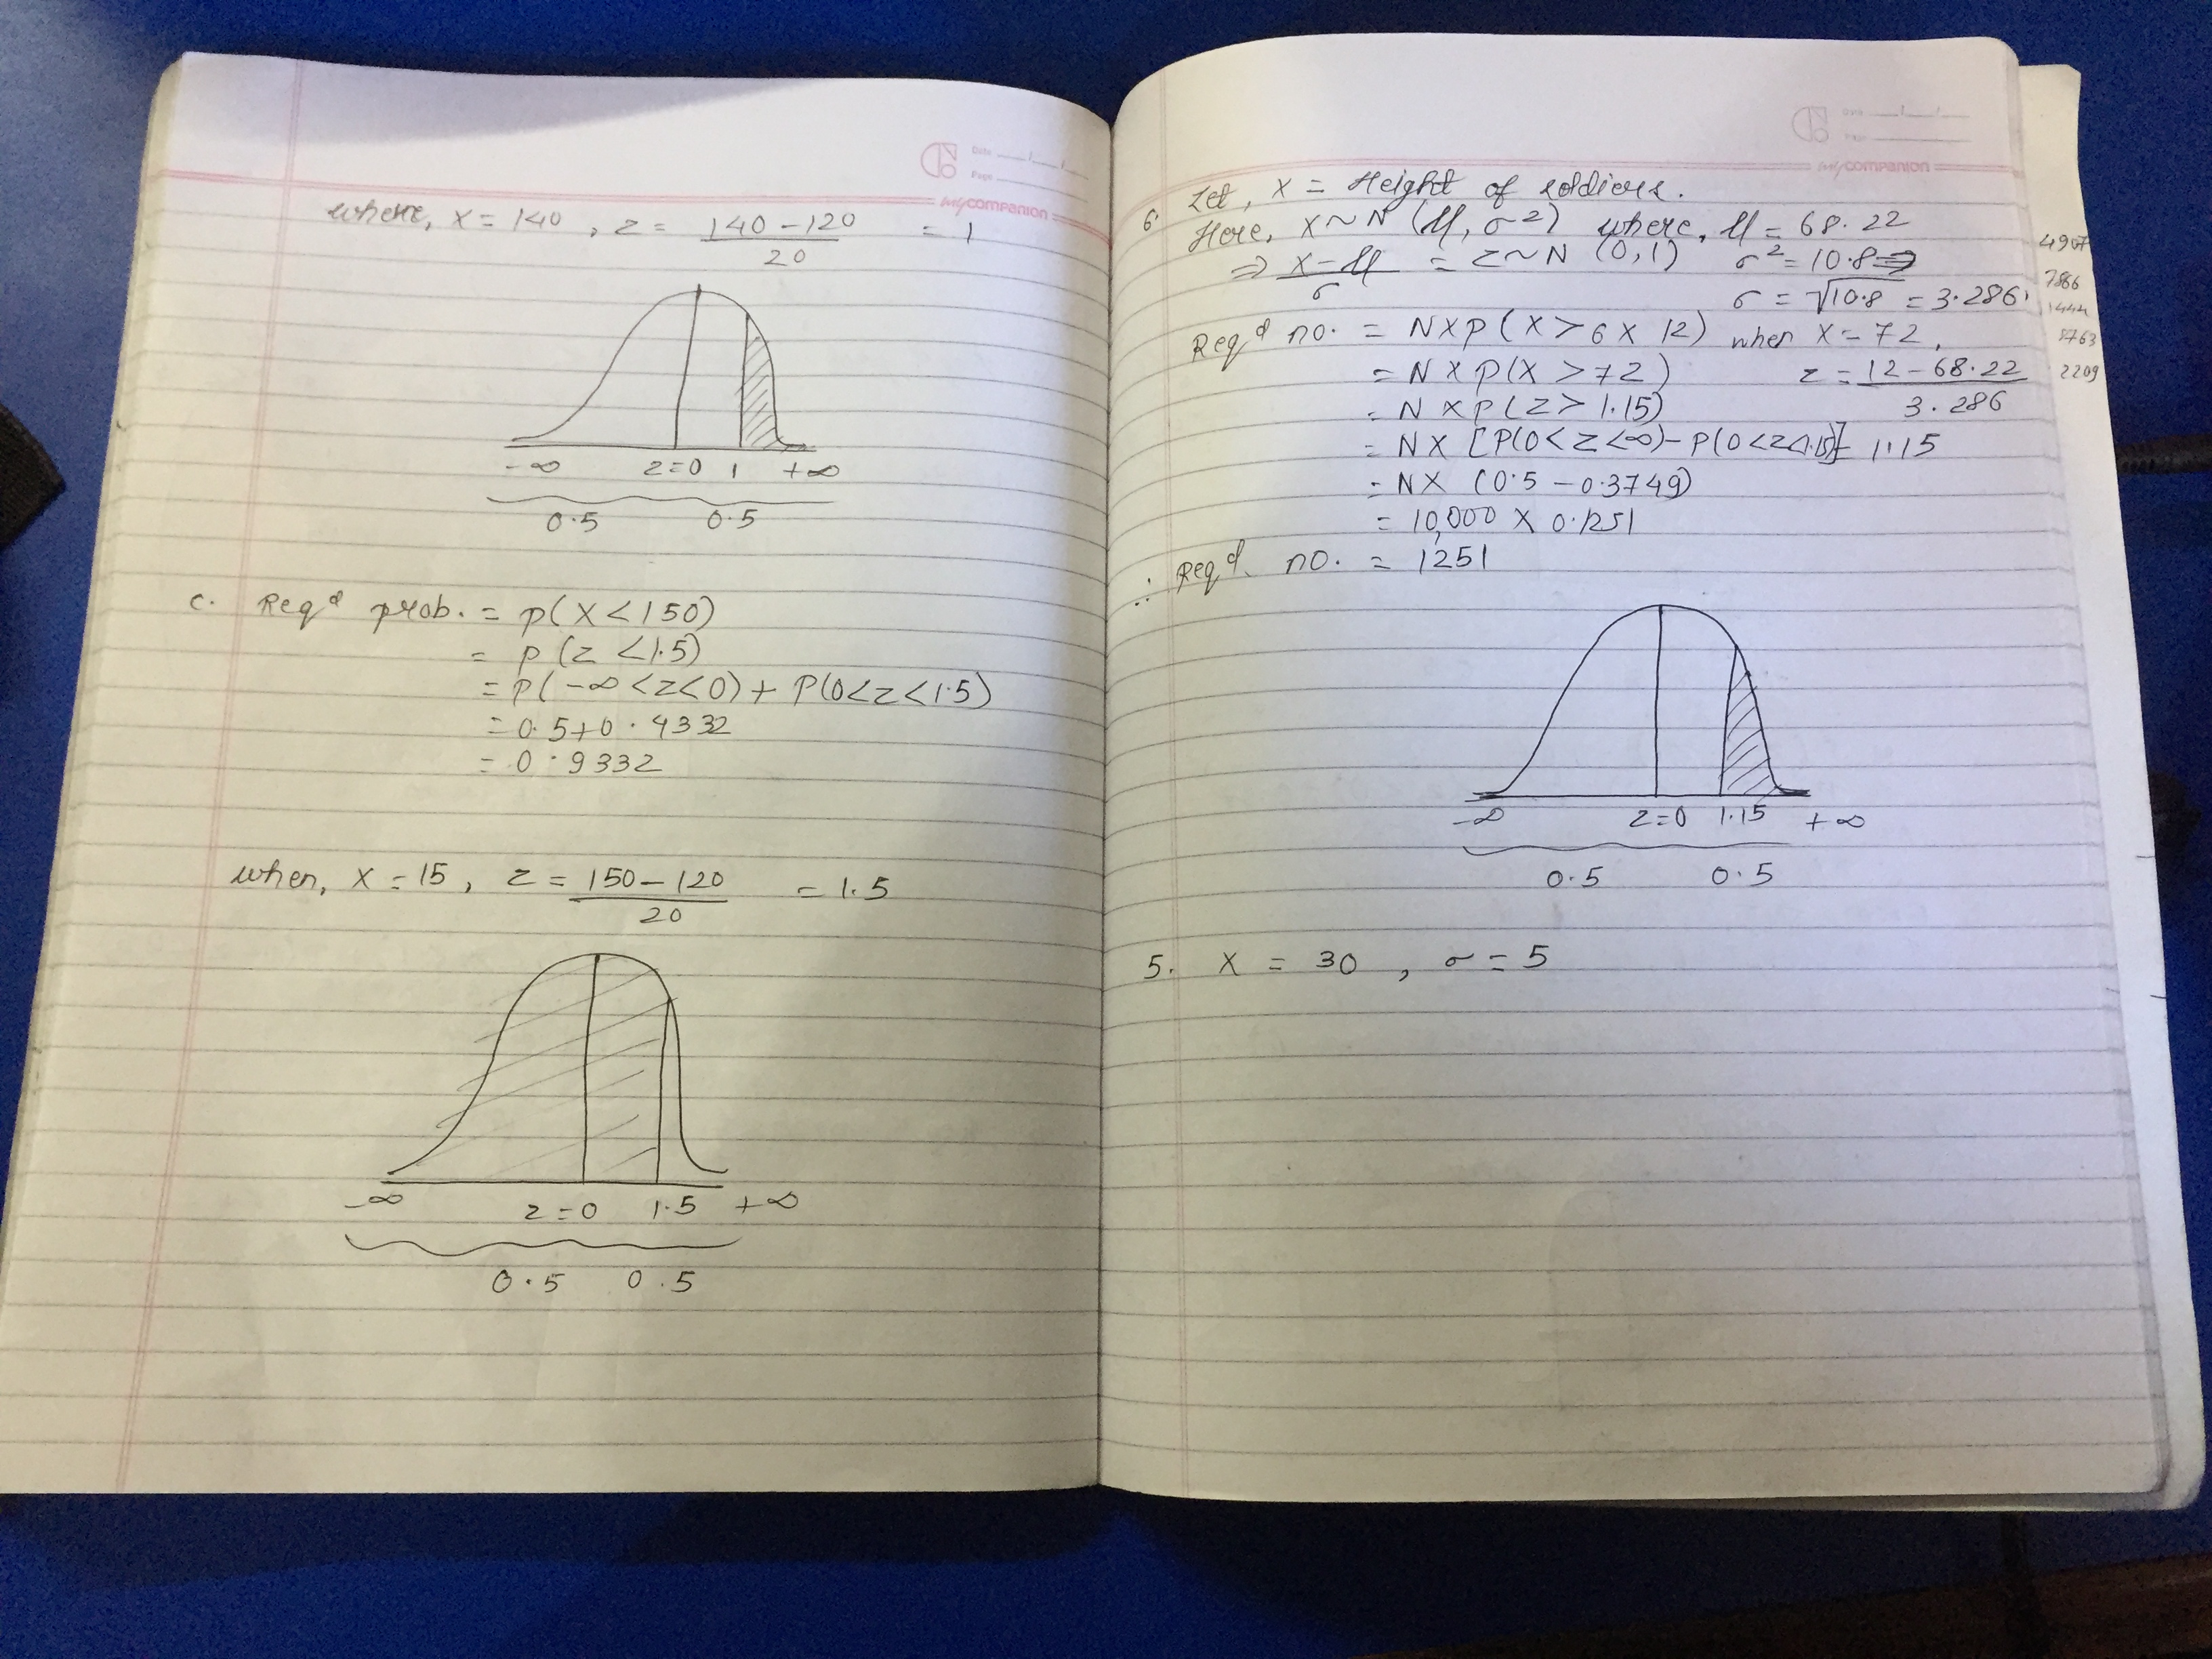 Date
Page
mycompanion
where, x = 140 , z = 140 - 120 / 20 = 1
-∞ z=0 1 +∞
0.5 0.5
c. Req^d prob. = P(X < 150)
= P (z < 1.5)
= P(-∞ < z < 0) + P(0 < z < 1.5)
= 0.5 + 0.4332
= 0.9332
when, x = 15, z = 150 - 120 / 20 = 1.5
-∞ z=0 1.5 +∞
0.5 0.5
Date
Page
mycompanion
6. Let, x = Height of soldiers.
Here, X ~ N (μ, σ²) where, μ = 68.22
⇒ x-μ / σ = z ~ N (0,1) σ² = 10.8 ⇒
σ = √10.8 = 3.286
Req^d no. = N X P ( X > 6 X 12) when x = 72,
= N X P(X > 72) z = 12 - 68.22 / 3.286
= N X P(Z > 1.15)
= N X [P(0<z<∞) - P(0<z<1.15)] = 1.15
= N X (0.5 - 0.3749)
= 10,000 X 0.1251
∴ Req^d. no. = 1251
-∞ z=0 1.15 +∞
0.5 0.5
5. X = 30 , σ = 5
4907
7866
1444
2209